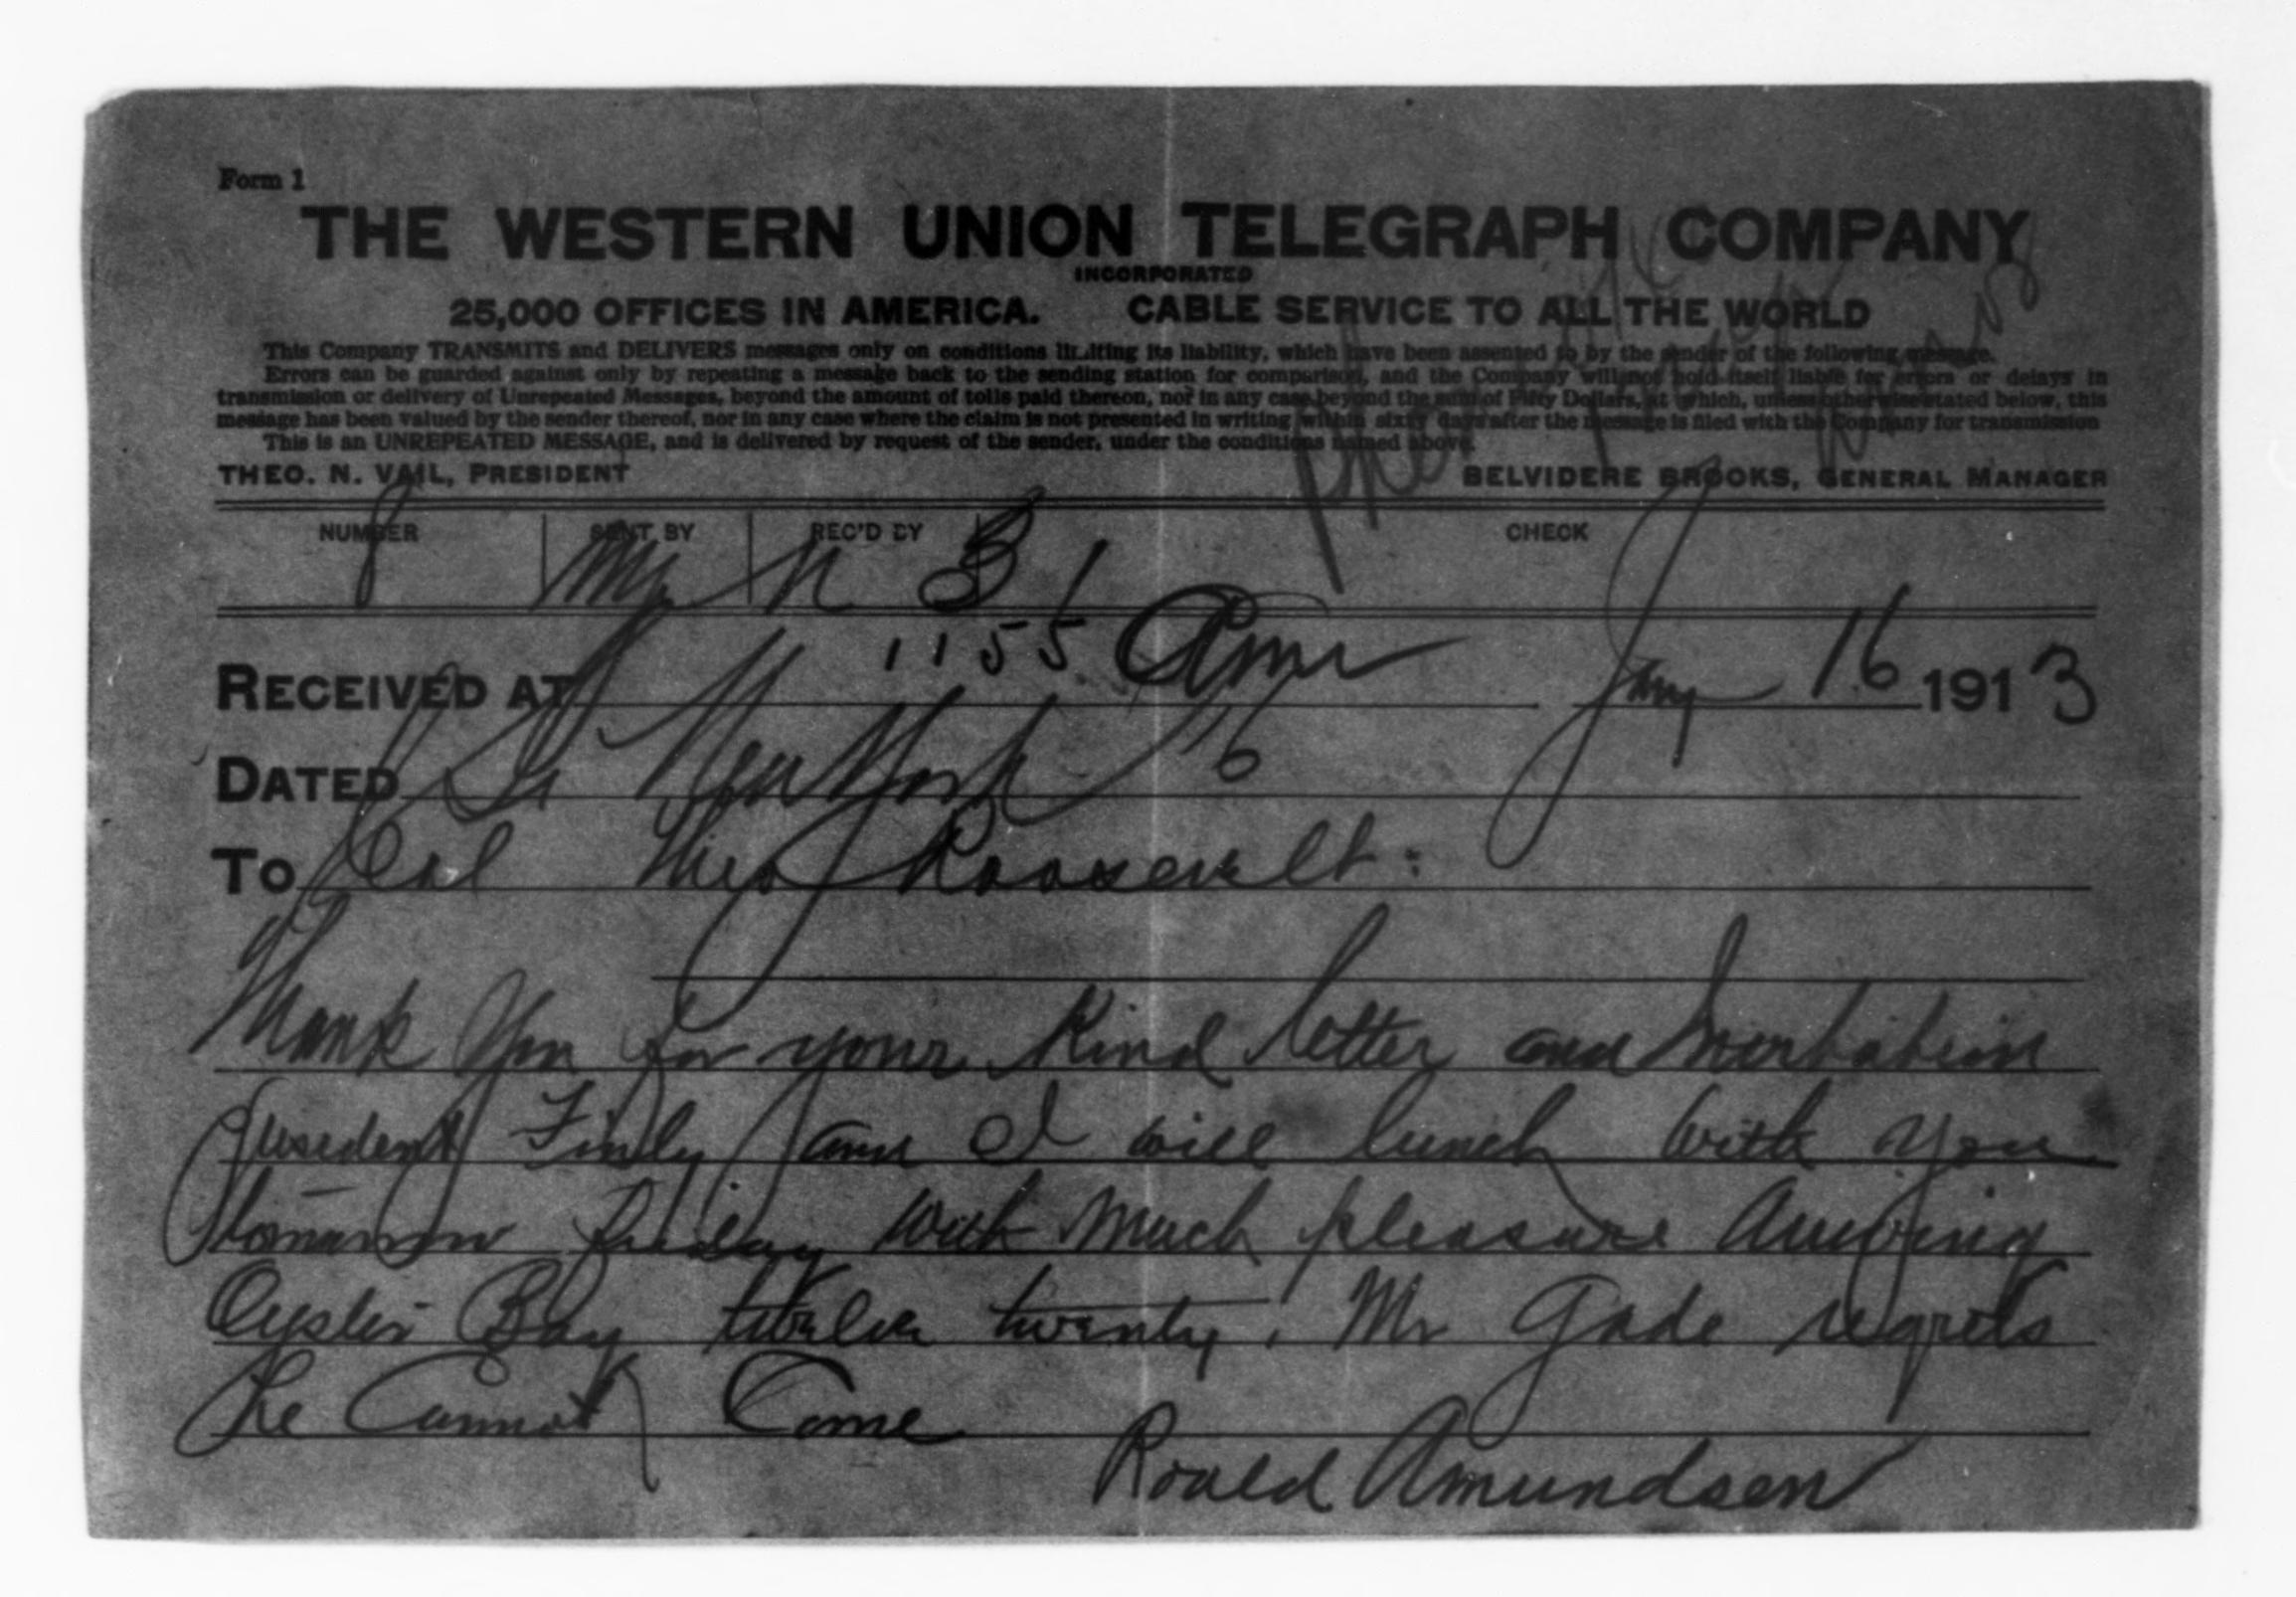 Form 1
THE WESTERN UNION TELEGRAPH COMPANY
INCORPORATED
25,000 OFFICES IN AMERICA. CABLE SERVICE TO ALL THE WORLD
This Company TRANSMITS and DELIVERS messages only on conditions limiting its liability, which have been assented to by the sender of the following message.
Errors can be guarded against only by repeating a message back to the sending station for comparison, and the Company will not hold itself liable for errors or delays in
transmission or delivery of Unrepeated Messages, beyond the amount of tolls paid thereon, nor in any case beyond the sum of Fifty Dollars, at which, unless otherwise stated below, this
message has been valued by the sender thereof, nor in any case where the claim is not presented in writing within sixty days after the message is filed with the Company for transmission
This is an UNREPEATED MESSAGE, and is delivered by request of the sender, under the conditions named above.
THEO. N. VAIL, PRESIDENT BELVIDERE BROOKS, GENERAL MANAGER
NUMBER SENT BY REC'D BY CHECK
8 My N
RECEIVED AT 1155 Am Jany 16 1913
DATED New York 16
To Col Theo Roosevelt:
Thank You for your Kind letter and Invitation
President Finly and I will lunch with you
tomorrow friday with much pleasure Arriving
Oyster Bay twelve twenty, Mr Gade regrets
he Cannot Come
Roald Amundsen